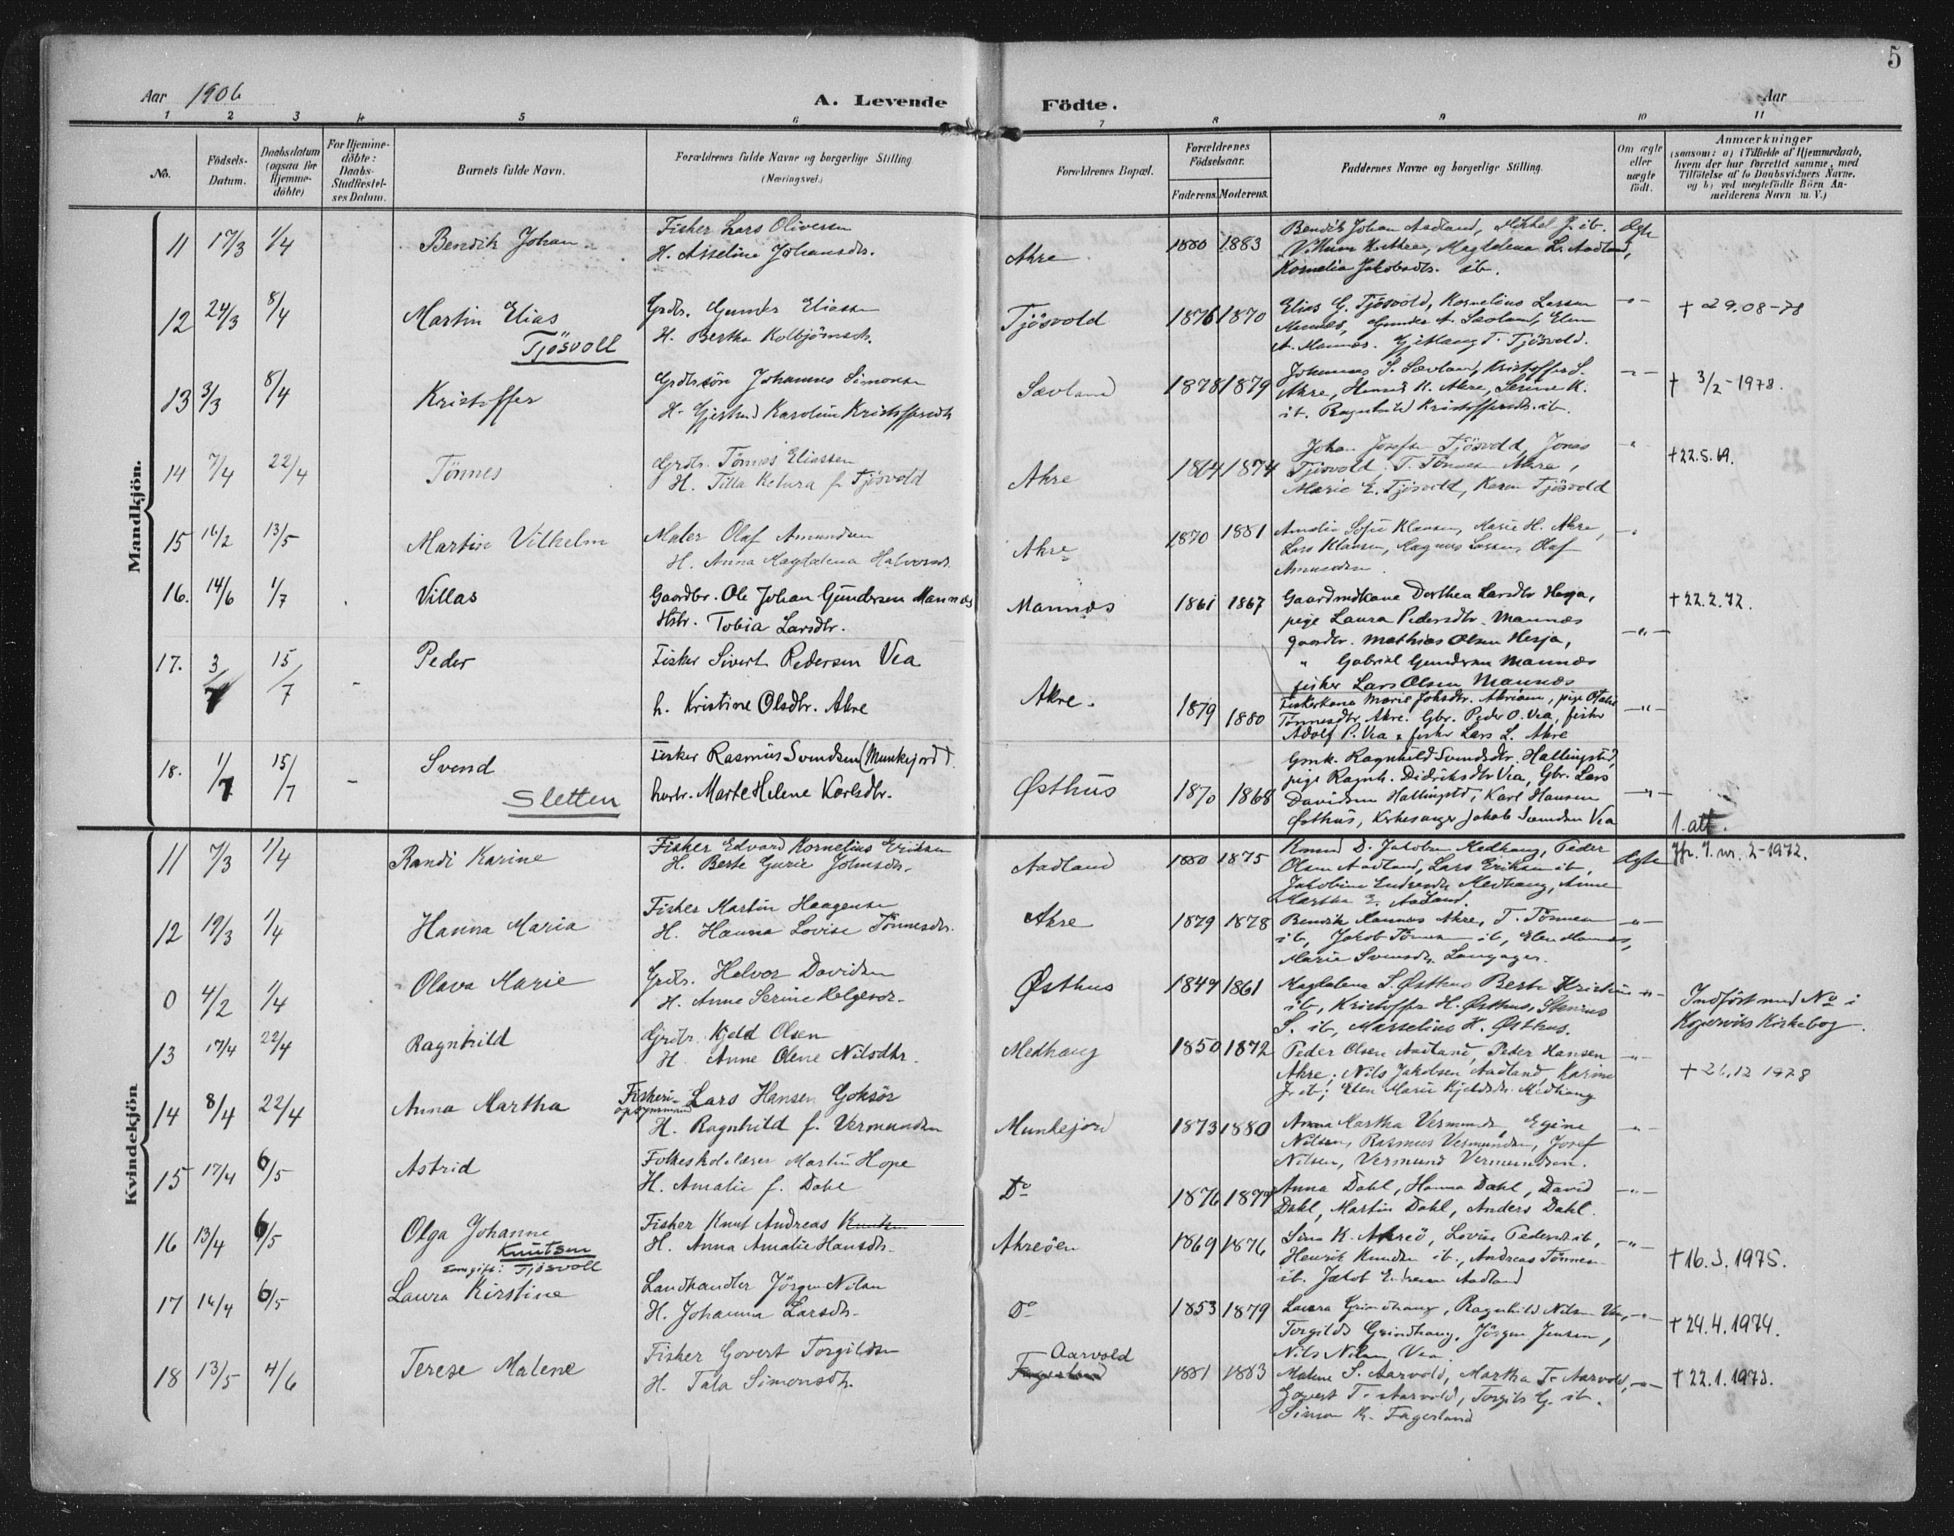 5
Aar 1906
A. Levende Födte.
Aar
1 2 3 4 5 6 7 8 9 10 11
No.
Födsels-Datum.
Daabsdatum (ogsaa for Hjemme-döbte)
For Hjemme-döbte: Daabs-Stadfæstel-ses Datum.
Barnets fulde Navn.
Forældrenes fulde Navne og borgerlige Stilling.
(Næringsvei.)
Forældrenes Bopæl.
Forældrenes Födselsaar.
Faderens Moderens.
Faddernes Navne og borgerlige Stilling.
Om ægte eller uægte født.
Anmærkninger
(saasom: a) i Tilfælde af Hjemmedaab, hvem der har forrettet samme, med Tilføielse af to Daabsvidners Navne. og b) ved uægtefödte Börn An-melderens Navn m. V.)
Mandkjön.
11 17/3 1/4 Bendik Johan
Fisher Lars Oliversen
H. Asseline Johansdtr.
Akre 1880 1883
Bendik Johan Aadland, Mikkel J. ib.
Villum K. Akre, Magdalena L. Aadland,
Kornelia Jakobsdtr. ib.
Ægte
12 24/3 8/4 Martin Elias
Tjösvoll
Grdr. Gunder Eliassen
H. Bertha Kolbjörnsdr.
Tjösvold 1876 1870
Elias G. Tjösvold, Kornelius Larsen
Mannes, Gunder A. Sævland, Elen
A. Mannes. Gjethaug T. Tjösvold.
-"- † 29.08-78
13 3/3 8/4 Kristoffer
Grdrsön Johannes Simonsen
H. Gjertrud Karoline Kristoffersdtr
Sævland 1878 1879
Johannes S. Sævland, Kristoffer S.
Akre, Henrik K. Akre, Serine K.
ib. Ragnhild Kristoffersdtr. ib.
-"- † 3/2-1978.
14 7/4 22/4 Tönnes
Grdbr. Tönnes Eliassen
H. Tilla Ketura f. Tjösvold
Akre 1864 1874
Johan Josefsen Tjösvold, Jonas
Tjösvold. T. Tönnesen Akre,
Marie E. Tjösvold, Karen Tjösvold
" † 22.5.69.
15 16/2 13/5 Martin Vilhelm
Maler Olaf Amundsen
H. Anna Magdalena Halvorsdr.
Akre 1870 1881
Amalia Sofie Klausen, Marie H. Akre,
Lars Klausen, Magnus Larsen, Olaf
Amundsen.
-"-
16. 14/6 1/7 Villas
Gaardbr. Ole Johan Gundersen Mannæs
Hstr. Tobia Larsdtr.
Mannæs 1861 1867
Gaardmdkone Dorthea Larsdtr Hesja,
pige Laura Pedersdtr. Mannæs
gaardbr. Mathias Olsen Hesja,
" Gabriel Gundersen Mannæs
fisker Lars Olsen Mannæs
-"- † 22.2.72.
17. 3/7 15/7 - Peder
Fisker Sivert Pedersen Vea
h. Kristine Olsdtr. Akre
Akre. 1879 1880
Fiskerkone Marie Johsdtr. Akreöen, pige Otalie
Tönnesdtr. Akre. Gbr. Peder O. Vea, fisker
Adolf P. Vea & fisker Lars L. Akre
-"-
18. 1/7 15/7 - Svend
Sletten
Fisker Rasmus Svendsen (Munkejord)
hustr. Marte Helene Karlsdtr.
Østhus 1870 1868
Gmk. Ragnhild Svendsdtr. Hallingstd,
pige Ragnh. Didriksdtr Vea, Gbr. Lars
Davidsen Hallingstd, Karl Hansen
Østhus, Kirkesanger Jakob Svendsen Vea
-"- 1. att.
Kvindekjön
11 7/3 1/4 Randi Karine
Fisher Edvard Kornelius Eriksen
H. Berte Gurie Johnsdtr.
Aadland 1880 1875
Knud D. Jakobsen Medhaug, Peder
Olsen Aadland, Lars Eriksen ib,
Jakobine Endresdtr Medhaug, Anne
Martha E. Aadland.
Ægte Jfr. J. nr. 2-1972.
12 19/3 1/4 Hanna Maria
Fisher Martin Haagensen
H. Hanna Lovise Tönnesdr.
Akre 1879 1878
Bendik Hannæs Akre, T. Tönnesen
ib, Jakob Tönnesen ib, Elen Hannes,
Marie Svensdr. Langager.
-"-
0 4/2 1/4 Olava Marie
Grdr. Halvor Davidsen
H. Anne Serine Helgesdr.
Østhus 1849 1861
Magdalena S. Østhus Berte Kristine
ib, Kristoffer H. Østhus, Stenius
S. ib, Marselius H. Østhus.
-"- Indfört med No i
Kopervik Kirkebog.
13 17/4 22/4 Ragnhild
Grdbr. Kjeld Olsen
H. Anne Olene Nilsdtr.
Medhaug 1850 1872
Peder Olsen Aadland, Peder Hansen
Akre, Nils Jakobsen Aadland Karine
J. ib; Elen Marie Kjeldsdr. Medhaug
-"- † 26.12 1978
14 8/4 22/4 Anna Martha
Fiskeri-opsynsmand Lars Hansen Goksör
H. Ragnhild f. Vermundsen
Munkejord 1873 1880
Anna Martha Vermunds, Egine
Nilsen, Rasmus Vermundsen, Josef
Nilsen, Vermund Vermundsen.
-"-
15 17/4 6/5 Astrid
Folkeskolelærer Martin Hope
H. Amalie f. Dahl
Do 1876 1877
Anna Dahl, Hanna Dahl, David
Dahl, Martin Dahl, Anders Dahl.
-"-
16 13/4 6/5 Olga Johanne
Knutsen
Som gift: Tjösvoll
Fisker Knut Andreas Knutsen
H. Anna Amalie Hansdtr.
Akreöen 1869 1876
Sina K. Akreö, Lovise Pedersdtr ib,
Henrik Knudsen ib, Andreas Tönnesen
ib. Jakob Endresen Aadland
-"- † 16.3.1975.
17 14/4 6/5 Laura Kirstine
Landhandler Jörgen Nilsen
H. Johanna Larsdtr.
Do 1853 1879
Laura Grindhaug, Ragnhild Nilsen Vea,
Torgilds Grindhaug, Jörgen Jensen,
Nils Nilsen Vea
-"- † 24.4.1974.
18 13/5 4/6 Terese Malene
Fisher Govert Torgildsen
H. Tala Simonsdtr.
Aarvold
Fagerland 1881 1883
Malene S. Aarvold, Martha T. Aarvold,
Govert T. Aarvold, Torgils G. ib.
Simon K. Fagerland
-"- † 22.1.1973.